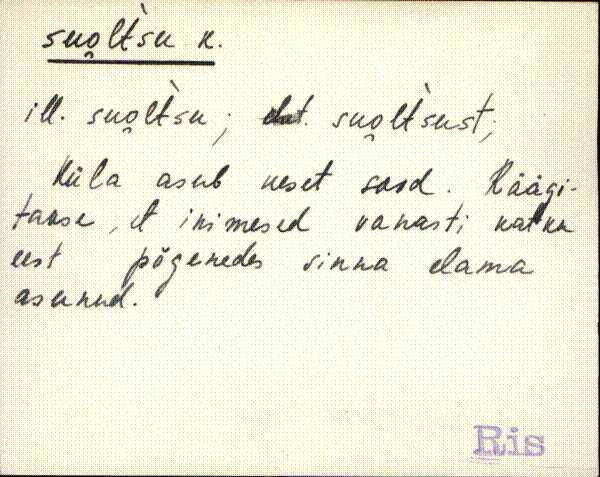 suo̯ltsu k.
ill. suo̯ltsu; elat. suo̯ltsust;
Küla asub keset sood. Räägi-
takse, et inimesed vanasti katku
eest põgenedes sinna elama
asunud.
Ris